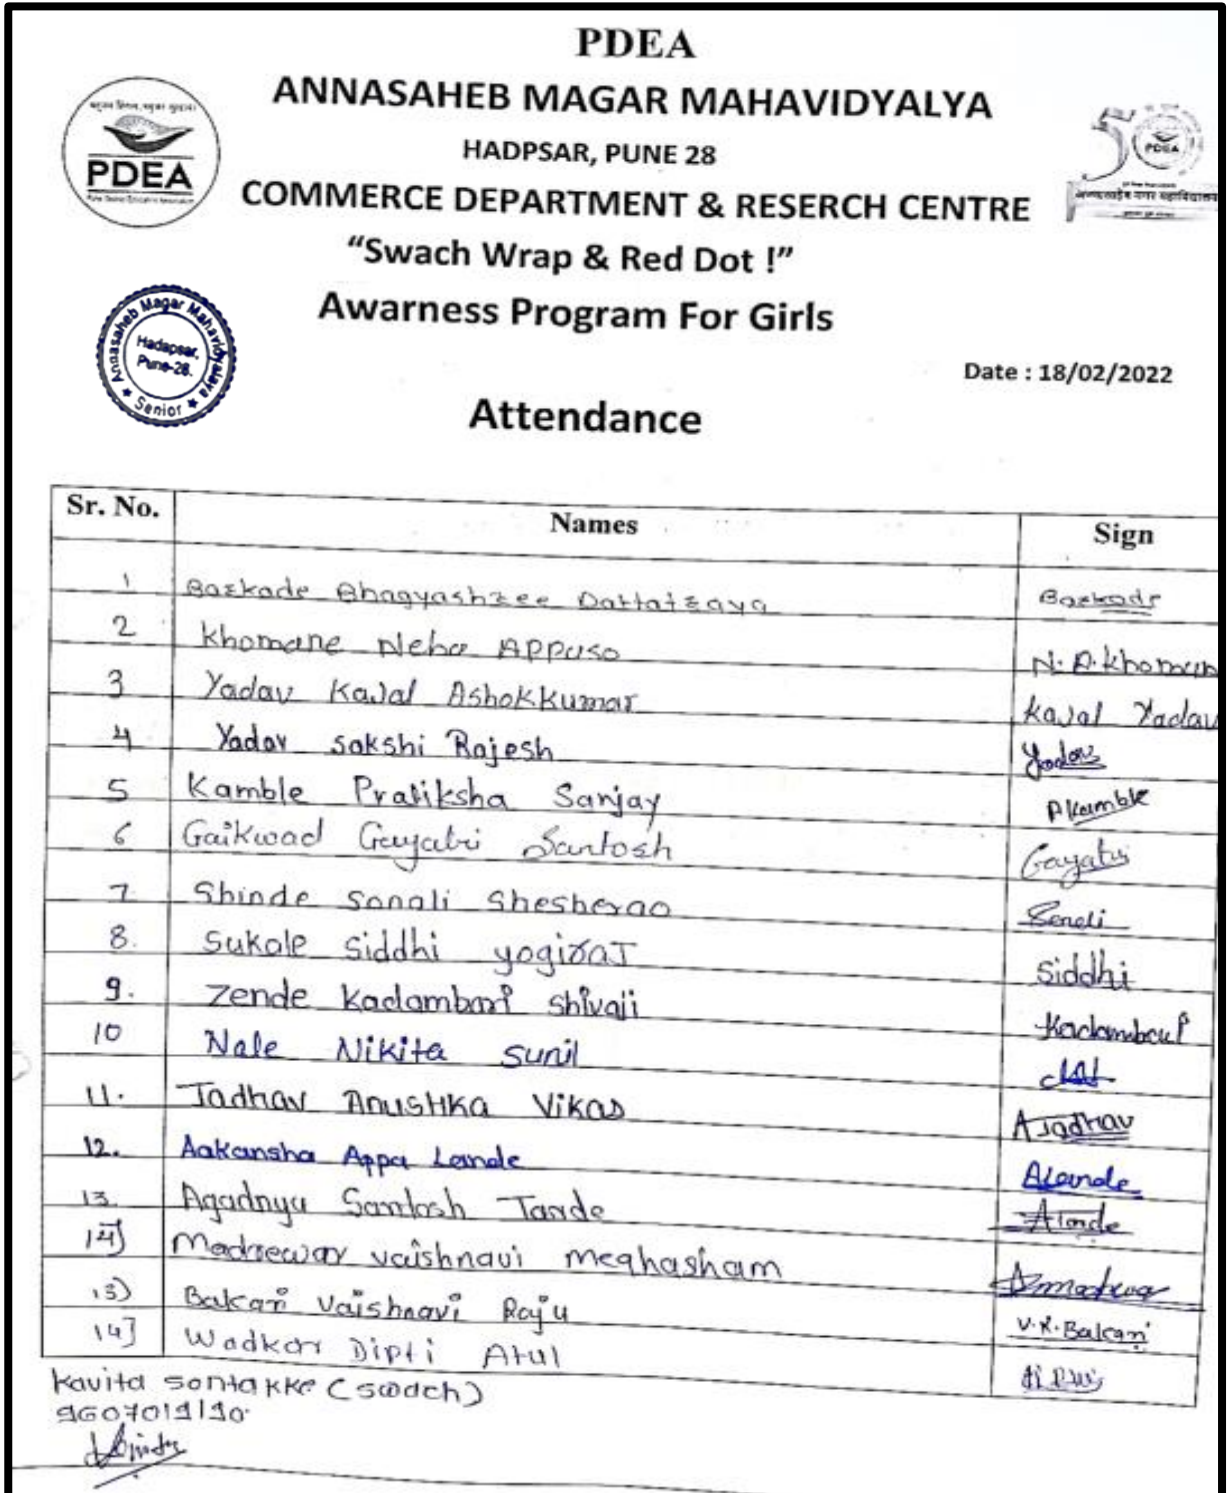 PDEA
ANNASAHEB MAGAR MAHAVIDYALYA
HADPSAR, PUNE 28
COMMERCE DEPARTMENT & RESERCH CENTRE
“Swach Wrap & Red Dot !”
Awarness Program For Girls
PDEA
50
PDEA
Annasaheb Magar Mahavidyalaya
Hadapsar,
Pune-28.
Senior
Date : 18/02/2022
Attendance
Sr. No. Names Sign
1 Barkade Bhagyashree Dattatraya Barkade
2 Khomane Neha Appuso N. A. Khomane
3 Yadav Kajal Ashokkumar Kajal Yadav
4 Yadav Sakshi Rajesh Yadav
5 Kamble Pratiksha Sanjay PKamble
6 Gaikwad Gayatri Santosh Gayatri
7 Shinde Sonali Shesherao Sonali
8. Sukale Siddhi yogiraJ Siddhi
9. Zende Kadambari Shivaji Kadambari
10 Nale Nikita Sunil
11. Jadhav Anushka Vikas AJadhav
12. Aakansha Appa Lande ALande
13. Agadnya Santosh Tande
14] Madrewar vaishnavi meghasham
13) Bakari Vaishnavi Raju V.R.Bakari
14] Wadkar Dipti Atul
kavita sontakke (swach)
9607019190